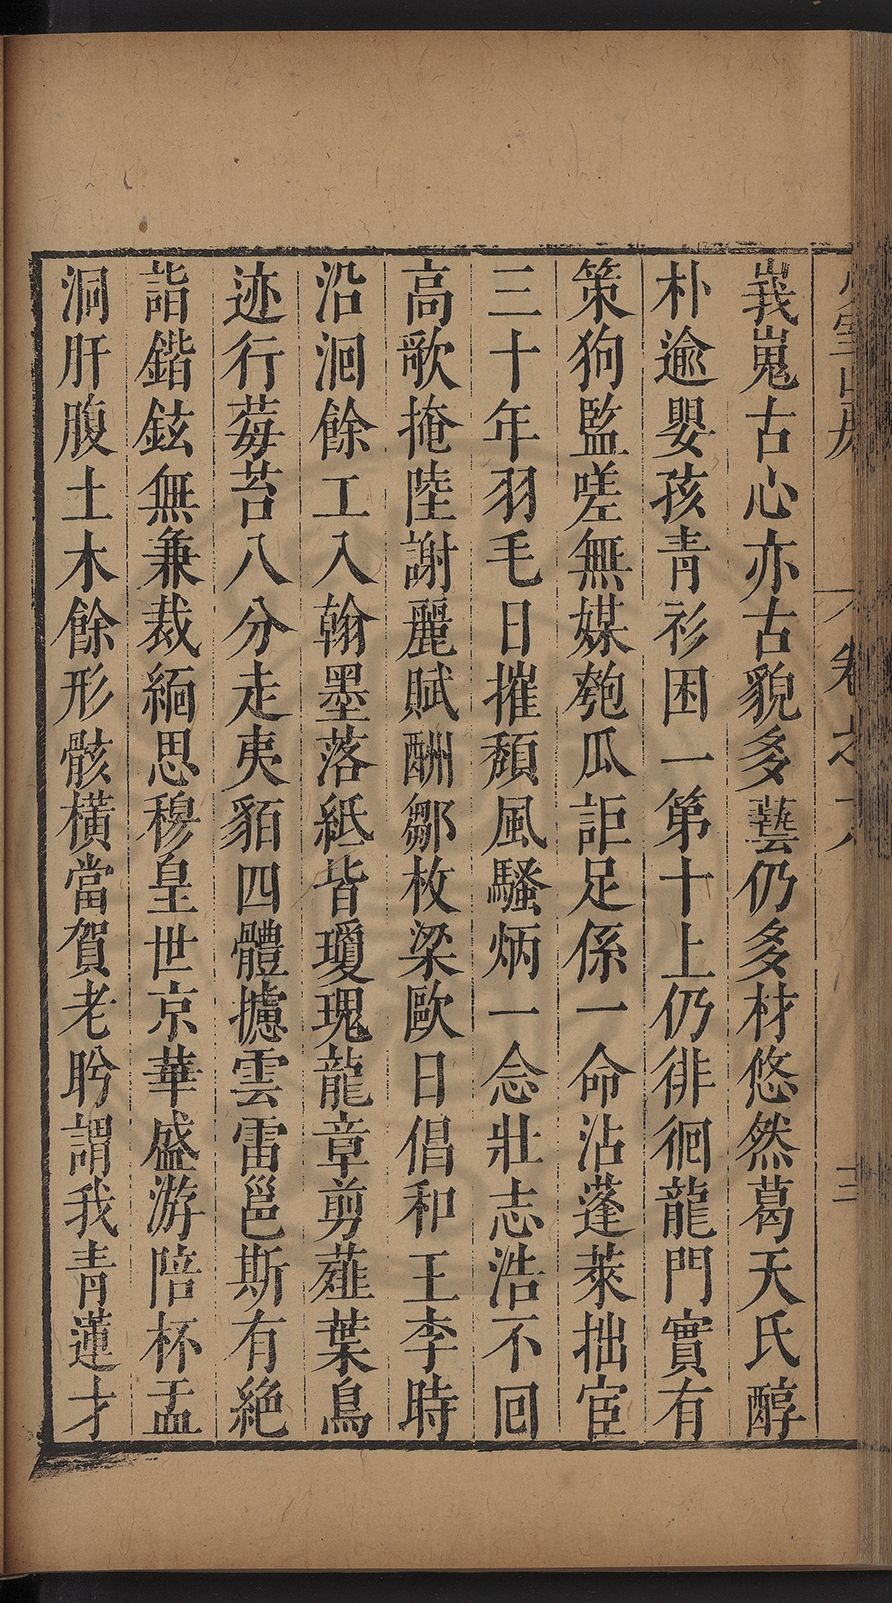 室山房 卷之
峩嵬古心亦古貌多藝仍多材悠然葛天氏醇
朴逾嬰孩青衫困一第十上仍徘徊龍門實有
策狗監嗟無媒匏瓜詎足係一命沾蓬萊拙宦
三十年羽毛日摧頹風騷炳一念壯志浩不回
高歌掩陸謝麗賦酬鄒枚梁歐日倡和王李時
沿洄餘工入翰墨落紙皆瓊瑰龍章剪薤葉鳥
迹行莓苔八分走夷貊四體攄雲雷邕斯有絶
詣鍇鉉無兼裁緬思穆皇世京華盛游陪杯盂
洞肝腹土木餘形骸橫當賀老盻謂我青蓮才